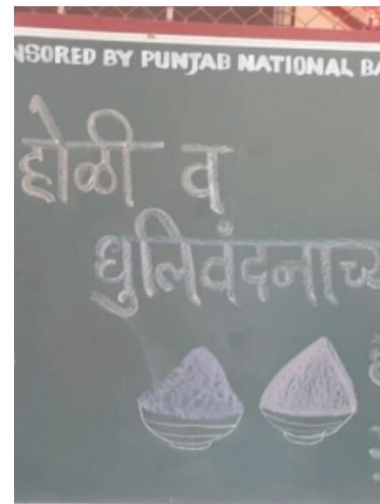 NSORED BY PUNJAB NATIONAL BA
होळी व
धुलिवंदनाच्य